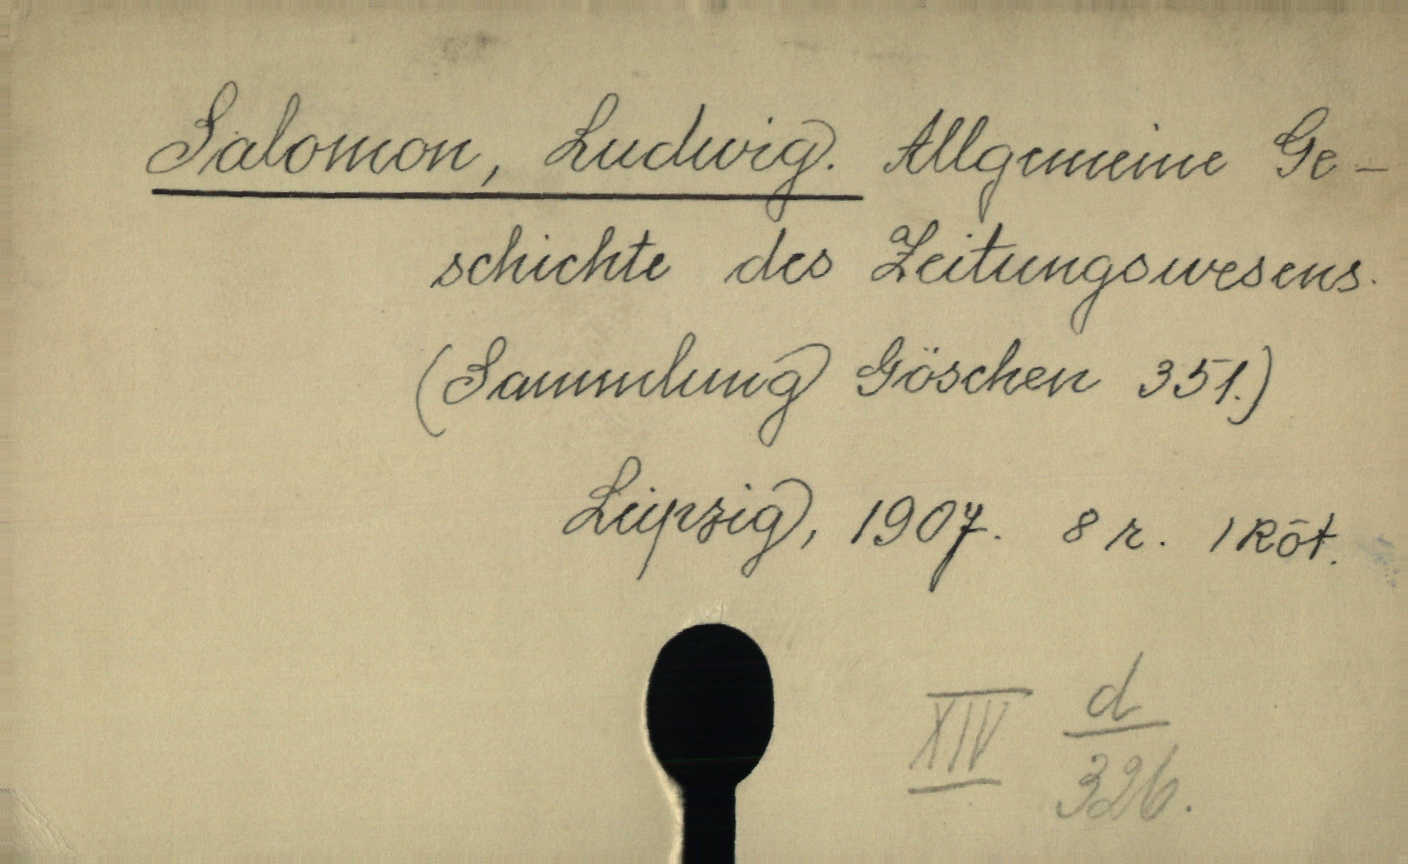 Salomon, Ludwig. Allgemeine Ge-
schichte des Zeitungswesens.
(Sammlung Göschen 351.)
Leipzig, 1907. 8 r. 1 Köt.
XIV d/326.